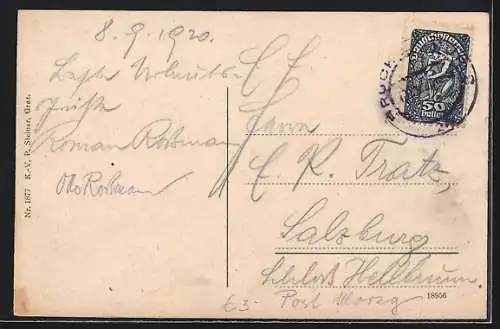 8. 9. 1920.
Beste Urlaubs-
Grüße
Roman Roßmann
Otto Roßmann
Nr. 1877 K.-V. P. Steiner, Graz.
Deutschösterreich
50
Heller
BRUCK
Herrn
E. K. Tratz,
Salzburg
Schloß Hellbrunn
Post Morzg
€3-
18956